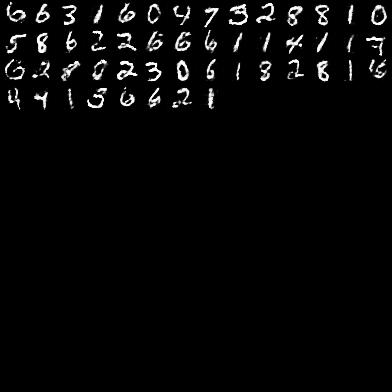 6 6 3 1 6 0 4 7 3 2 8 8 1 0
5 8 6 2 2 6 6 6 1 1 4 1 1 7
6 2 8 0 2 3 0 6 1 8 2 8 1
4 4 1 5 6 6 2 1